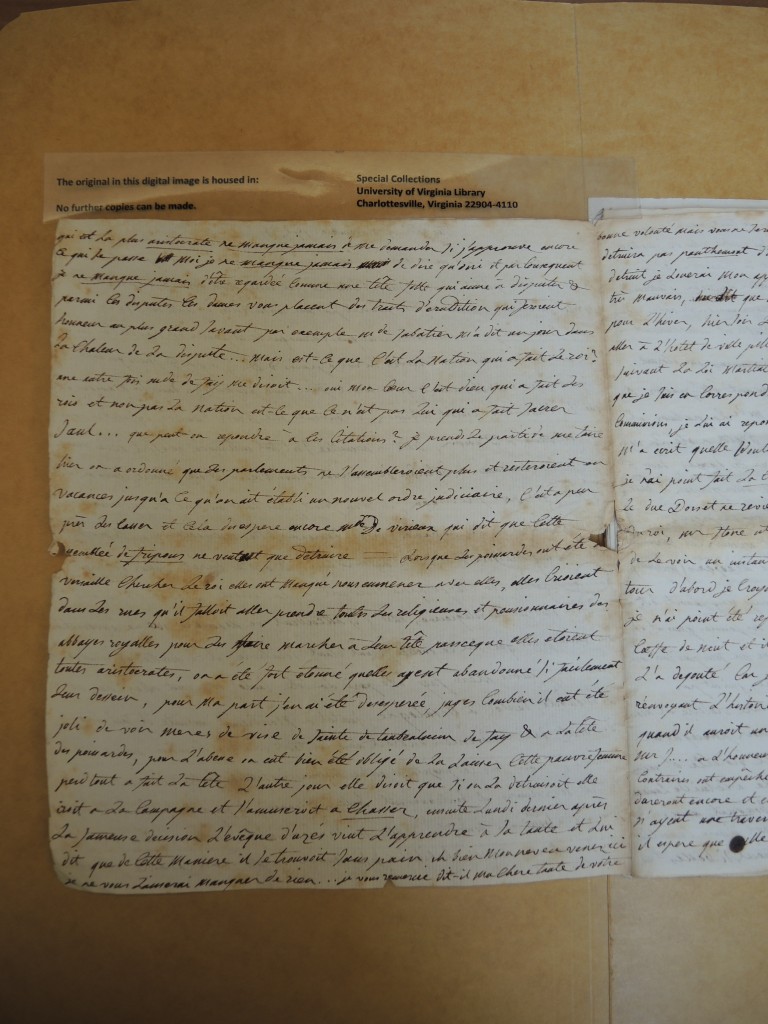 The original in this digital image is housed in:
No further copies can be made.
Special Collections
University of Virginia Library
Charlottesville, Virginia 22904-4110
qui est la plus aristocrate ne manque jamais de me demander si j'approuve encore
ce qui se passe moi je ne manque jamais de dire qu'oui et par consequent
je ne manque jamais d'être regardée comme une tête folle qui aime a disputer &
parmi les disputes les dames vous placent des traits d'erudition qui feroient
honneur au plus grand savant par exemple mde de sabatier m'a dit un jour dans
la chaleur de la dispute... mais est-ce que c'est la nation qui a fait le roi?
une autre fois mde de me disoit... oui mon cœur c'est dieu qui a fait les
rois et non pas la nation est-ce que ce n'est pas lui qui a fait sacrer
Saul... que peut-on repondre a ces citations? je prends le parti de me taire
hier on a ordonné que les parlements ne s'assembleroient plus et resteroient en
vacances jusqu'a ce qu'on ait établi un nouvel ordre judiciaire, c'est a peu
près les casser et cela desespere encore mde De virieux qui dit que cette
assemblée de fripons ne veut que detruire — Lorsque les poissardes ont été a
versaille chercher le roi elles ont manqué nous emmener avec elles, elles crioient
dans les rues qu'il falloit aller prendre toutes les religieuses et pensionnaires des
abbayes royalles pour les faire marcher a leur tête parceque elles etoient
toutes aristocrates, on a été fort etonné quelles ayent abandonné si facilement
leur dessein, pour ma part j'en ai été desesperée jugés combien il eut été
joli de voir mmes de de de & a la tête
des poissardes, pour l'abesse on eut bien été obligé de la laisser cette pauvre femme
perd tout a fait la tête l'autre jour elle disoit que si on la detruisoit elle
iroit a la campagne et s'amuseroit a chasser, ensuite lundi dernier après
la fameuse decision l'evêque d'uzés vint l'apprendre a sa tante et lui
dit que de cette maniere il se trouvoit sans pain eh bien mon neveu venez ici
je ne vous laisserai manquer de rien... je vous remercie dit-il ma chere tante de votre
bonne volonté mais vous ne
detruira pas panthemont
detruit je louerai mon
très mauvais, que
pour l'hiver, hier soir
aller a l'hotel de ville
suivant la loi
que je suis en
commissions, je lui ai
m'a ecrit quelle
je n'ai point fait
le duc Dorset ne
du roi,
de le voir un instant
tour d'abord je
je n'ai point été
coeffe de nuit et
l'a degouté car
renvoyant l'histoire
quand il auroit
sur J.... a d'honneur
contraires ont empêché
dureront encore et
n'ayent une
il espere que elle